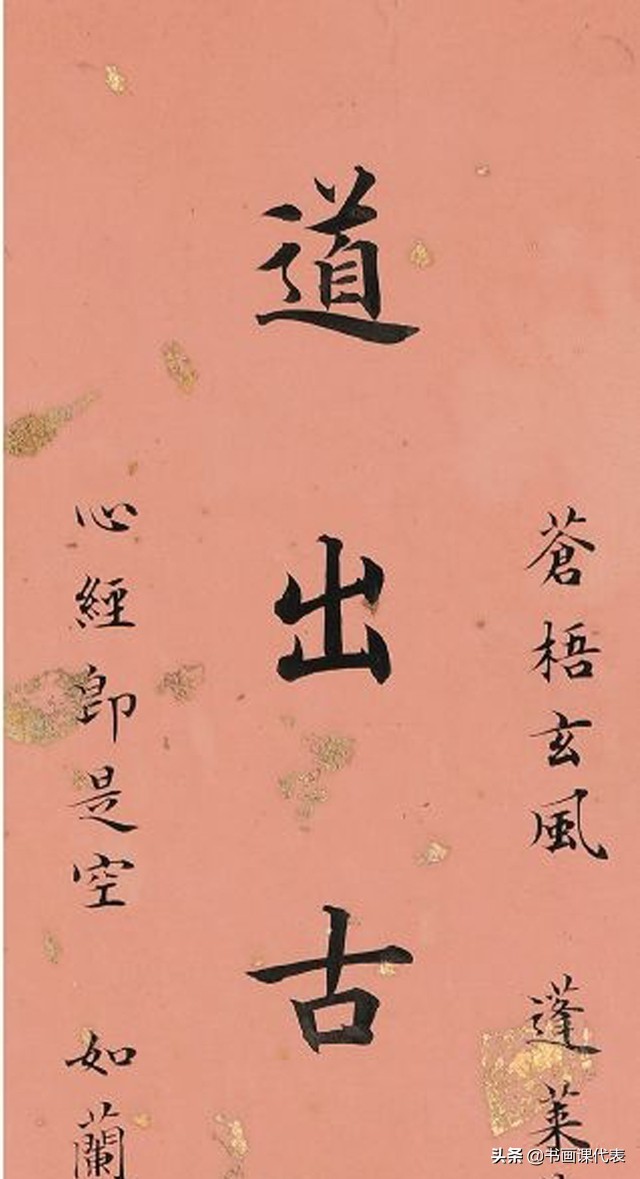 蒼梧玄風 蓬萊
道出古
心經即是空 如蘭
头条 @书画课代表